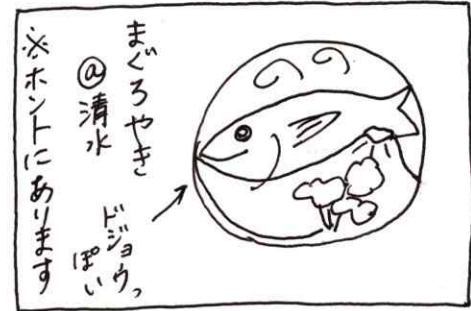 まぐろやき
@清水
ドジョウっ
ぽい
※ホントにあります